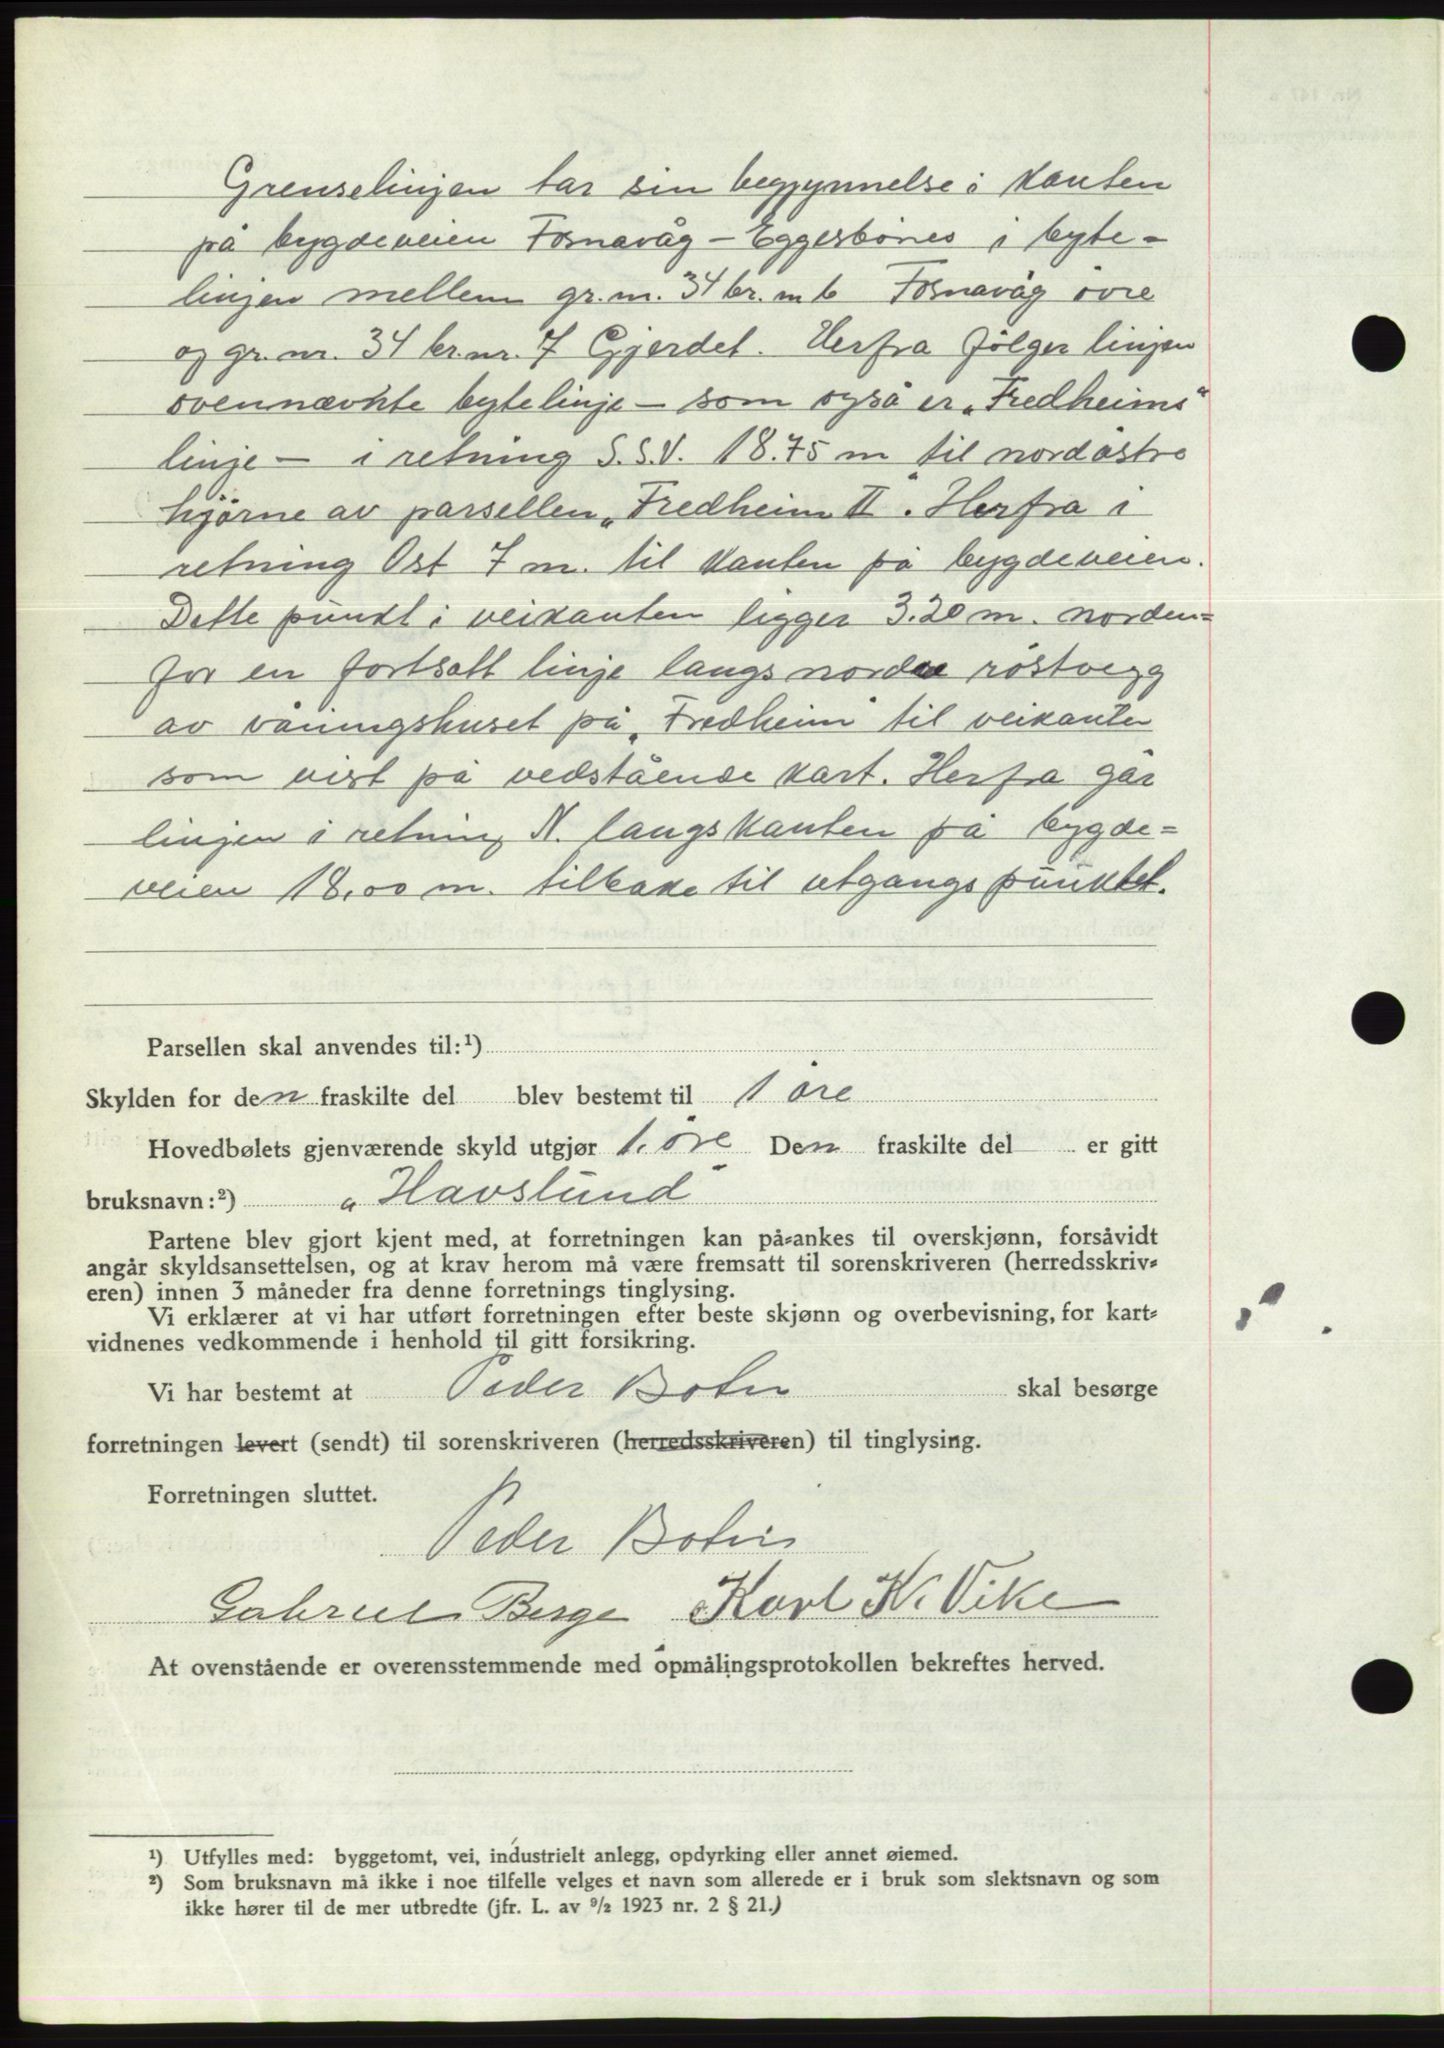 Grenselinjen tar sin begyynnelse i kanten
på bygdeveien Fosnavåg – Eggesbönes i byte-
linjen mellem gr. nr. 34 br. nr 6 Fosnavåg övre
og gr. nr. 34 br. nr. 7 Gjerdet. Herfra fölger linjen
ovennævnte bytelinje – som også er „Fredheims"
linje – i retning S.S.V. 18.75 m til nordöstre
hjörne av parsellen „Fredheim II". Herfra i
retning Öst 7 m. til kanten på bygdeveien.
Dette punkt i veikanten ligger 3.20 m. norden=
for en fortsatt linje langs nordre röstvegg
av våningshuset på „Fredheim" til veikanten
som vist på vedstående kart. Herfra går
linjen i retning N. langs kanten på bygde=
veien 18,00 m. tilbake til utgangspunktet.
Parsellen skal anvendes til:¹)
Skylden for den fraskilte del blev bestemt til 1 öre
Hovedbølets gjenværende skyld utgjør 1. öre Den fraskilte del er gitt
bruksnavn:²) „Havslund"
Partene blev gjort kjent med, at forretningen kan på-ankes til overskjønn, forsåvidt
angår skyldsansettelsen, og at krav herom må være fremsatt til sorenskriveren (herredsskriv=
eren) innen 3 måneder fra denne forretnings tinglysing.
Vi erklærer at vi har utført forretningen efter beste skjønn og overbevisning, for kart=
vidnenes vedkommende i henhold til gitt forsikring.
Vi har bestemt at Peder Botn skal besørge
forretningen levert (sendt) til sorenskriveren (herredsskriveren) til tinglysing.
Forretningen sluttet.
Peder Botn
Gabriel Berge Karl K. Vike
At ovenstående er overensstemmende med opmålingsprotokollen bekreftes herved.
¹) Utfylles med: byggetomt, vei, industrielt anlegg, opdyrking eller annet øiemed.
²) Som bruksnavn må ikke i noe tilfelle velges et navn som allerede er i bruk som slektsnavn og som
ikke hører til de mer utbredte (jfr. L. av 9/2 1923 nr. 2 § 21.)